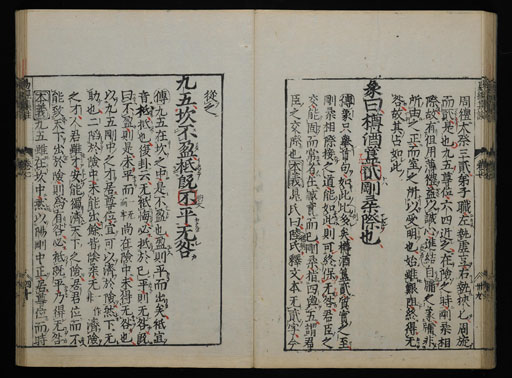 周禮太祭三貳第子職左執虛豆右執挾匕周旋
而貳是也九五尊位六四近之在險之時剛柔相
際故有但用薄禮益以誠心進結自牖之象牖非
所由之正而室之所以受明也始雖艱阻終得无
咎故其占如此
象曰樽酒簋貳剛柔際也
傳象只舉首句如此比多矣樽酒簋貳質實之至
剛柔相際接之道能如此則可終保无咎君臣之
交能固而常者在誠實而已剛柔指四與五謂君
臣之交際也本義晁氏曰陸氏釋文本无貳字今
從之
九五坎不盈祗既不平无咎
傳九五在坎之中是不盈也盈則平而出矣祗宜
音柢抵也復卦云无祗悔必抵於已平則无咎既
曰不盈則是未平而尚在險中未得无咎也
以九五剛中之才居尊位宜可以濟於險然下无
助也二陷於險中未能出餘皆陰柔无濟險
之才人君雖才安能獨濟天下之險居君位而不
能致天下出於險則為有咎必祗既平乃得无咎
本義九五雖在坎中然以陽剛中正居尊位而時